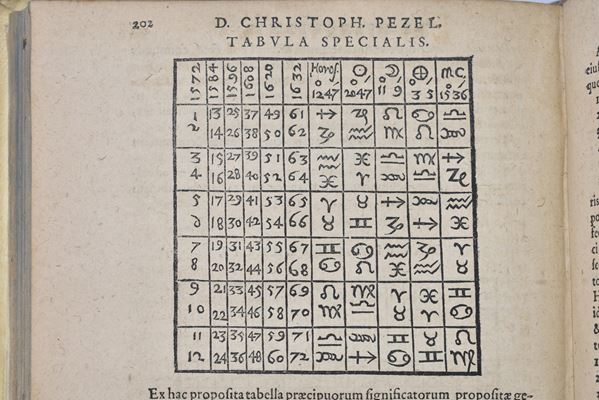 202 D. CHRISTOPH. PEZEL.
TABVLA SPECIALIS.
1572 1584 1596 1608 1620 1632 Horos. ☉ ☽ ⊕ MC.
0 0 0 0 0
12 47 20 47 11 9 3 5 15 36
1 13 25 37 49 61 ♐ ♑ ♌ ♋ ♎
2 14 26 38 50 62 ♑ ♒ ♍ ♌ ♏
3 15 27 39 51 63 ♒ ♓ ♎ ♍ ♐
4 16 28 40 52 64 ♓ ♈ ♏ ♎ ♑
5 17 29 41 53 65 ♈ ♉ ♐ ♏ ♒
6 18 30 42 54 66 ♉ ♊ ♑ ♐ ♓
7 19 31 43 55 67 ♊ ♋ ♒ ♑ ♈
8 20 32 44 56 68 ♋ ♌ ♓ ♒ ♉
9 21 33 45 57 69 ♌ ♍ ♈ ♓ ♊
10 22 34 46 58 70 ♍ ♎ ♉ ♈ ♋
11 23 35 47 59 71 ♎ ♏ ♊ ♉ ♌
12 24 36 48 60 72 ♏ ♐ ♋ ♊ ♍
Ex hac proposita tabella præcipuorum significatorum propositæ ge-